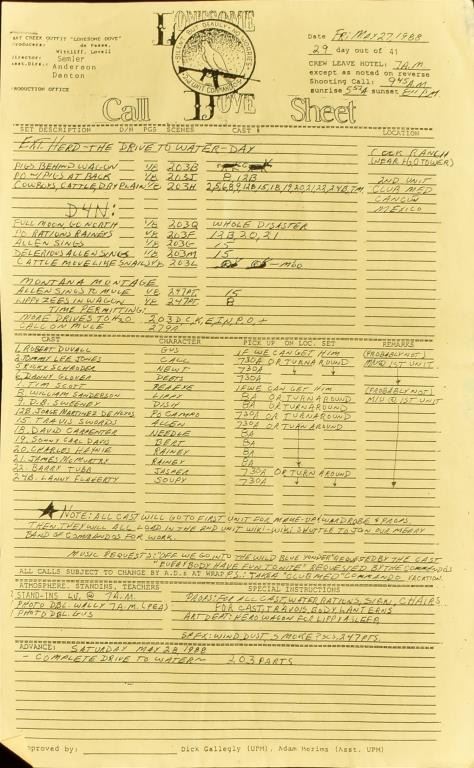 LONESOME DOVE
ART CREEK OUTFIT "LONESOME DOVE"
Producers: de Passe,
Wittliff, Lovell
Director: Semler
Asst.Dirs: Anderson
Danton
PRODUCTION OFFICE
Date FRI, MAY 27, 1988
29 day out of 41
CREW LEAVE HOTEL: 7A.M.
except as noted on reverse
Shooting Call: 945A.M.
sunrise sunset
Call Sheet
SET DESCRIPTION D/N PGS SCENES CAST # LOCATION
EXT. HERD-THE DRIVE TO WATER-DAY
COOK RANCH
(NEAR H2O TOWER)
PIGS BEHIND WAGON 1/8 203B
PO W/ PIGS AT BACK 1/8 203J 8, 12B
2ND UNIT
COWBOYS, CATTLE, DRY PLAIN 1/8 203H
CLUB MED
CANCUN
MEXICO
D4N:
FULL MOON, GO NORTH 1/8 203Q WHOLE DISASTER
PO RATIONS RAINEYS 1/8 203F 12B, 20, 21
ALLEN SINGS 1/8 203G 15
DELERIOUS ALLEN SINGS 1/8 203M 15
CATTLE MOVE LIKE SNAILS 1/8 203L
MONTANA MONTAGE
ALLEN SINGS TO MULE 1/8 247PT 15
LIPPY ZEES IN WAGON 1/8 247PT 8
TIME PERMITTING:
MORE DRIVES TO H2O 203 D, C, K, E, I, N, P, O, +
CALL ON MULE 279A
CAST CHARACTER PICK UP ON LOC. SET REMARKS
1. ROBERT DUVALL GUS IF WE CAN GET HIM (PROBABLY NOT)
2. TOMMY LEE JONES CALL 730A OR TURNAROUND M/U @ 1ST UNIT
5. RICKY SCHRODER NEWT 730A
6. DANNY GLOVER DEETS 730A
7. TIM SCOTT PEA EYE IF WE CAN GET HIM (PROBABLY NOT)
8. WILLIAM SANDERSON LIPPY 8A OR TURNAROUND M/U @ 1ST UNIT
9. D.B. SWEENEY DISH 8A OR TURNAROUND
12B. JORGE MARTINEZ DE HOYOS PO CAMPO 730A OR TURNAROUND
15. TRAVIS SWORDS ALLEN 730A OR TURNAROUND
18. DAVID CARPENTER NEEDLE 8A
19. SONNY CARL DAVIS BERT 8A
20. CHARLES HAYNIE RAINEY 8A
21. JAMES McMURTRY RAINEY 8A
22. BARRY TUBB JASPER 730A OR TURNAROUND
24B. LANNY FLAHERTY SOUPY 730A
NOTE: ALL CAST WILL GO TO FIRST UNIT FOR MAKE-UP, WARDROBE & PROPS.
THEN, THEY WILL ALL LOAD IN THE 2ND UNIT WIKI-WIKI SHUTTLE TO JOIN OUR MERRY
BAND OF COMMANDOS FOR WORK.
MUSIC REQUESTS: "OFF WE GO INTO THE WILD BLUE YONDER" REQUESTED BY THE CAST
"EVERYBODY HAVE FUN TONITE" REQUESTED BY THE COMMANDOS
ALL CALLS SUBJECT TO CHANGE BY A.D.s AT WRAP P.S.: TAKE A "CLUB MED" COMMANDO VACATION.
ATMOSPHERE, STANDINS, TEACHERS SPECIAL INSTRUCTIONS
STAND-INS LV. @ 7A.M. PROPS: FOR ALL CAST, WATER RATIONS, SIGN, CHAIRS
PHOTO DBL. WALLY 7A.M. (PEA) FOR CAST, TRAVOIS, BODY LANTERNS
PHOTO DBL. GUS ART DEPT: HERO WAGON FOR LIPPY ASLEEP
SPFX: WIND, DUST, SMOKE? SCS. 247PTS.
ADVANCE: SATURDAY MAY 28, 1988
- COMPLETE DRIVE TO WATER~ 203 PARTS
approved by: Dick Gallegly (UPM), Adam Merims (Asst. UPM)